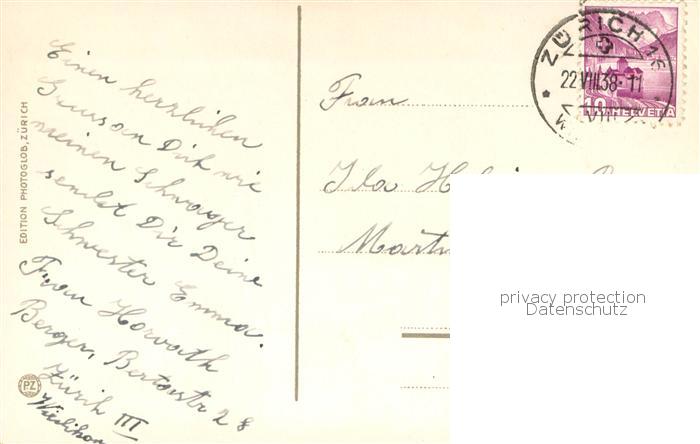 Einen herzlichen
Gruss an Dich wie
meinen Schwager
sendet Dir Deine
Schwester Emma.
Frau Horvath
Berger, Bertastr 28
Zürich III
Wiedikon
EDITION PHOTOGLOB, ZÜRICH
PZ
Frau
Ida
ZÜRICH
22.VIII.38-11
10 HELVETIA
privacy protection
Datenschutz